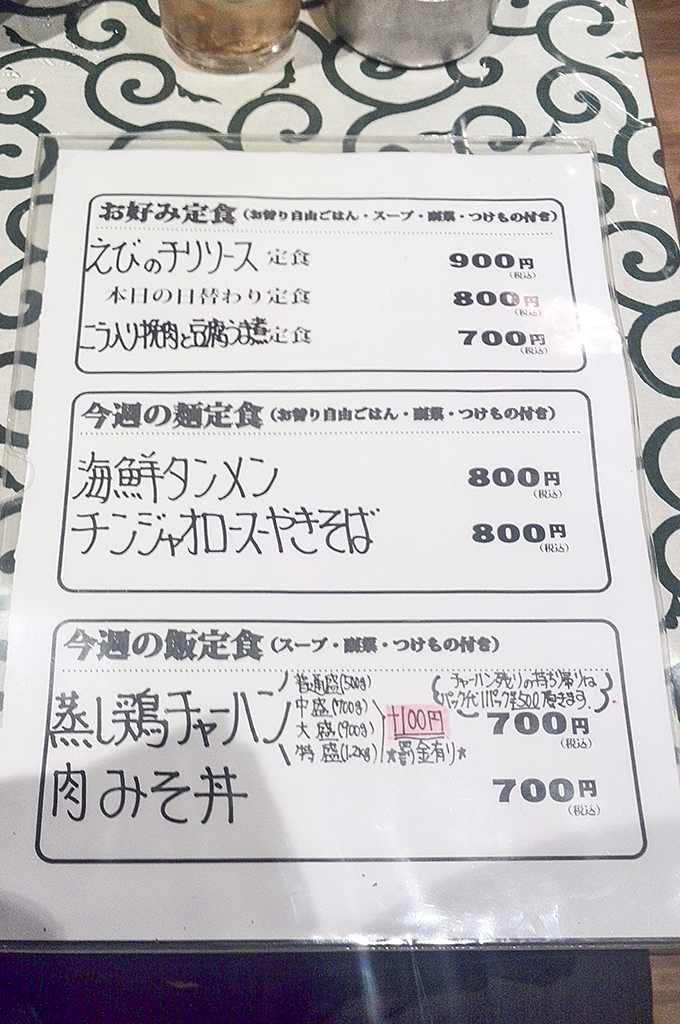 お好み定食(お替り自由ごはん・スープ・副菜・つけもの付き)
えびのチリソース 定食 900円(税込)
本日の日替わり定食 800円(税込)
ニラ入り挽肉と豆腐うま煮定食 700円(税込)
今週の麺定食(お替り自由ごはん・副菜・つけもの付き)
海鮮タンメン 800円(税込)
チンジャオロースーやきそば 800円(税込)
今週の飯定食(スープ・副菜・つけもの付き)
チャーハン残りの持ち帰りは
パック代1パック¥50頂きます。
蒸し鶏チャーハン 700円(税込)
普通盛(500g)
中盛(700g)
大盛(900g)
特盛(1.2kg)
+100円
★罰金有り★
肉みそ丼 700円(税込)